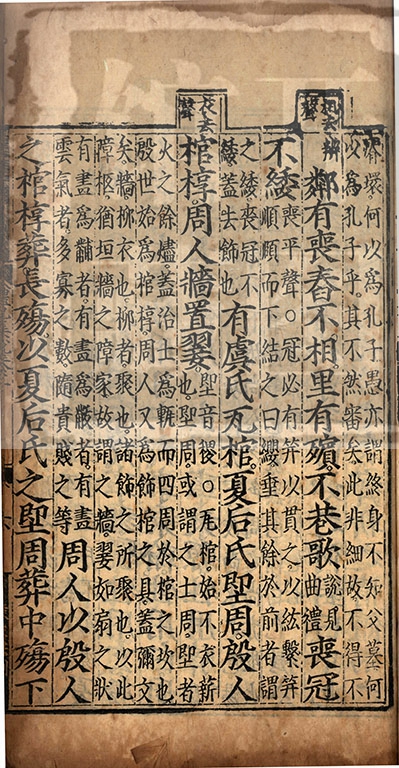 壞何以為孔子愚亦謂終身不知父墓何
以為孔子乎其不然審矣此非細故不得不
辨 鄰有喪舂不相里有殯不巷歌 說見曲禮 喪冠
相去聲
不緌 喪平聲○冠必有笄以貫之以紘繫笄
順頤而下結之曰纓垂其餘於前者謂
之緌喪冠不
緌蓋去飾也 有虞氏瓦棺夏后氏堲周殷人
衣去聲
棺椁周人牆置翣 堲音稷○瓦棺始不衣薪
也堲周或謂之土周堲者
火之餘燼蓋治土為甎而四周於棺之坎也
殷世始為棺椁周人又為飾棺之具蓋彌文
矣牆柳衣也柳者聚也諸飾之所聚也以此
障柩猶垣牆之障家故謂之牆翣如扇之狀
有畫為黼者有畫為黻者有畫
雲氣者多寡之數隨貴賤之等 周人以殷人
之棺椁葬長殤以夏后氏之堲周葬中殤下